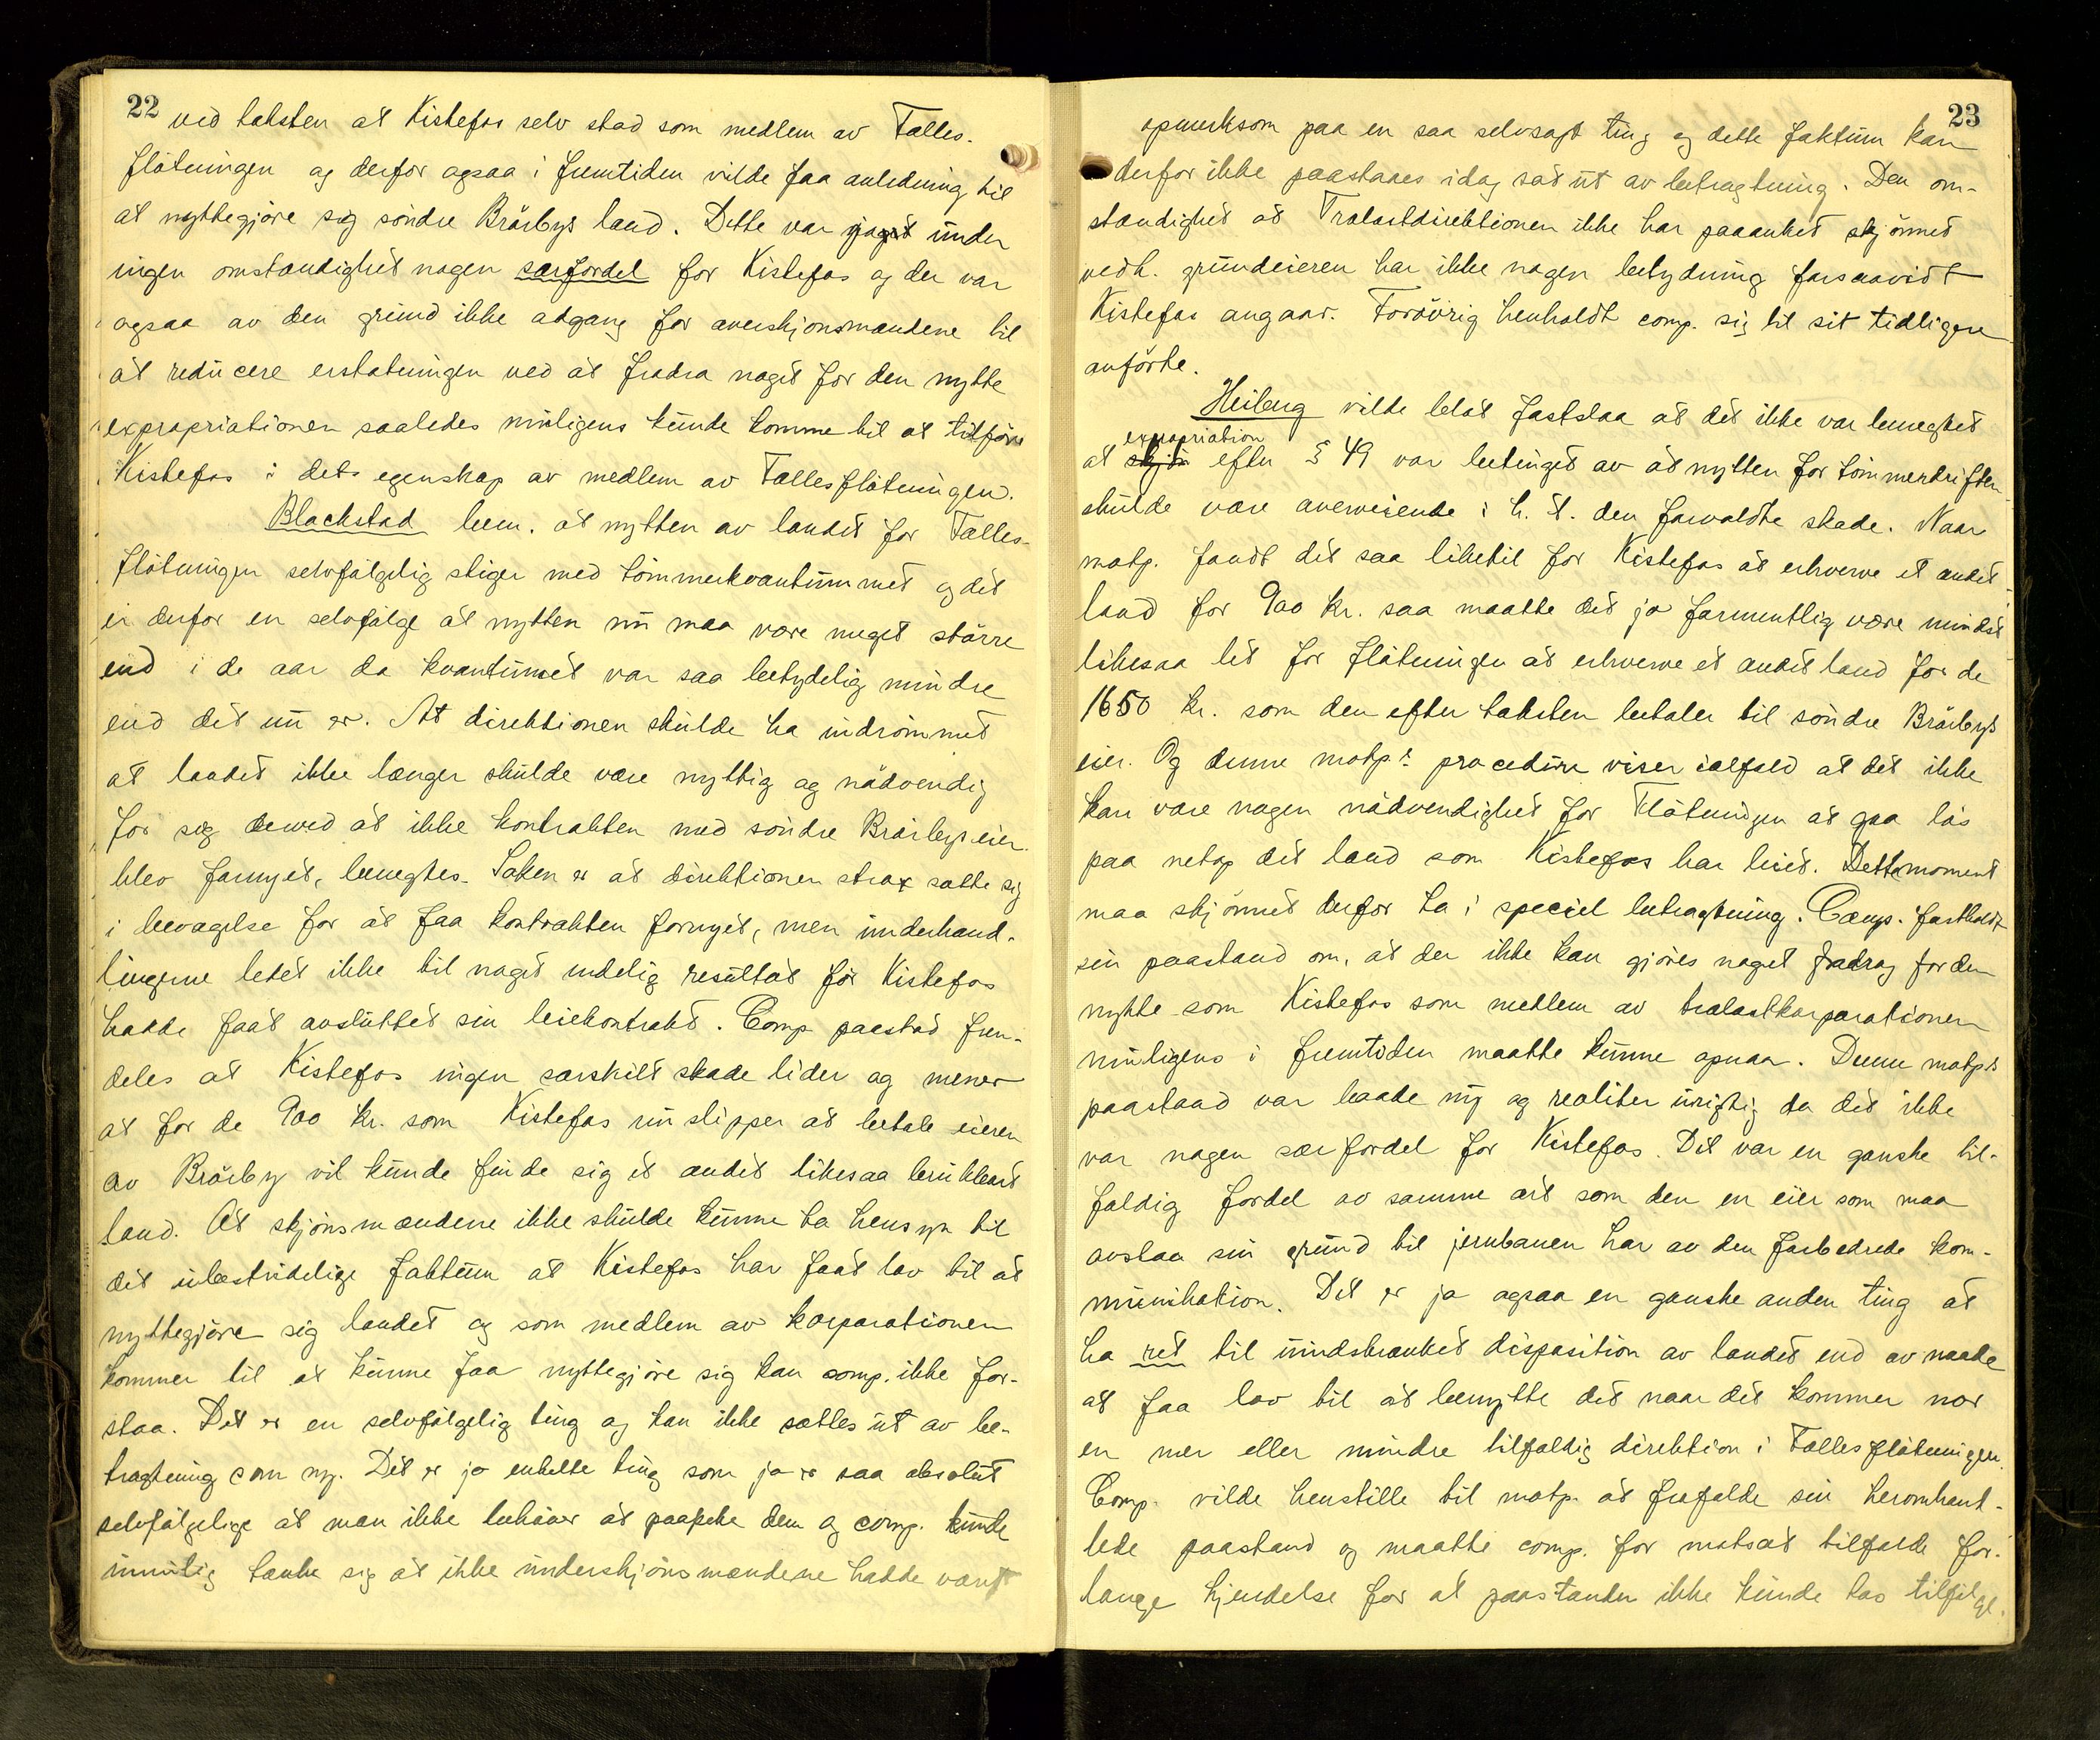 22
ved taksten at Kistefos selv stod som medlem av Fælles-
flötningen og derfor ogsaa i fremtiden vilde faa anledning til
at nyttegjöre sig söndre Brårbys land. Dette var under
ingen omstændighet nogen særfordel for Kistefos og der var
ogsaa av den grund ikke adgang for overskjönsmændene til
at reducere erstatningen ved at fradra noget for den nytte
expropriationen saaledes muligens kunde komme til at tilföre
Kistefos i dets egenskap av medlem av Fællesflötningen.
Blackstad bem. at nytten av landet for Fælles-
flötningen selvfölgelig stiger med tömmerkvantummet og det
er derfor en selvfölge at nytten nu maa være meget större
end i de aar da kvantumet var saa betydelig mindre
end det nu er. At direktionen skulde ha indrömmet
at landet ikke længer skulde være nyttig og nödvendig
for sig derved at ikke kontrakten med söndre Brårbys eier
blev fornyet, benegtes. Saken er at direktionen strax satte sig
i bevægelse for at faa kontrakten fornyet, men underhand-
lingerne ledet ikke til noget endelig resultat för Kistefos
hadde faat avsluttet sin leiekontrakt. Comp. paastod frem-
deles at Kistefos ingen særskilt skade lider og mener
at for de 900 kr. som Kistefos nu slipper at betale eieren
av Brårby vil kunde finde sig et andet likesaa brukbart
land. At skjönsmændene ikke skulde kunne ta hensyn til
det ubestridelige faktum at Kistefos har faat lov til at
nyttegjöre sig landet og som medlem av korporationen
kommer til at kunne faa nyttegjöre sig kan comp. ikke for-
staa. Det er en selvfölgelig ting og kan ikke sættes ut av be-
tragtning som ny. Det er jo enkelte ting som jo er saa absolut
selvfölgelige at man ikke behöver at paapeke dem og comp. kunde
umulig tænke sig at ikke underskjönsmændene hadde været
23
opmerksom paa en saa selvsagt ting og dette faktum kan
derfor ikke paastaaes idag sat ut av betragtning. Den om-
stændighet at Trælastdirektionen ikke har paaanket skjönnet
vedk. grundeieren har ikke nogen betydning forsaavidt
Kistefos angaar. Forövrig henholdt comp. sig til sit tidligere
anförte.
Heiberg vilde letat fastslaa at det ikke var benegtet
expropriation
at skjön efter § 49 var betinget av at nytten for tömmerdriften
skulde være overveiende i h. t. den forvoldte skade. Naar
motp. fandt det saa liketil for Kistefos at erhverve et andet
land for 900 kr. saa maatte det jo formentlig være mindst
likesaa let for flötningen at erhverve et andet land for de
1650 kr. som den efter taksten betaler til söndre Bråbys
eier. Og denne motp.s procedure viser ialfald at det ikke
kan være nogen nödvendighet for Flötningen at gaa lös
paa netop det land som Kistefos har leiet. Dette moment
maa skjönnet derfor ta i speciel betragtning. Comp. fastholdt
sin paastand om, at der ikke kan gjöres noget fradrag for den
nytte som Kistefos som medlem av trælastkorporationen
muligens i fremtiden maatte kunne opnaa. Denne motp.s
paastand var baade ny og realiter urigtig da det ikke
var nogen særfordel for Kistefos. Det var en ganske til-
fældig fordel av samme art som den en eier som maa
avstaa sin grund til jernbanen har av den forbedrede kom-
munikation. Det er jo ogsaa en ganske anden ting at
ha ret til uindskrænket disposition av landet end av naade
at faa lov til at benytte det naar det kommer
en mer eller mindre tilfældig direktion i Fællesflötningen.
Comp. vilde henstille til motp. at frafalde sin heromhand-
lede paastand og maatte comp. for motsat tilfælde for-
lange kjendelse for at paastanden ikke kunde tas tilfölge.